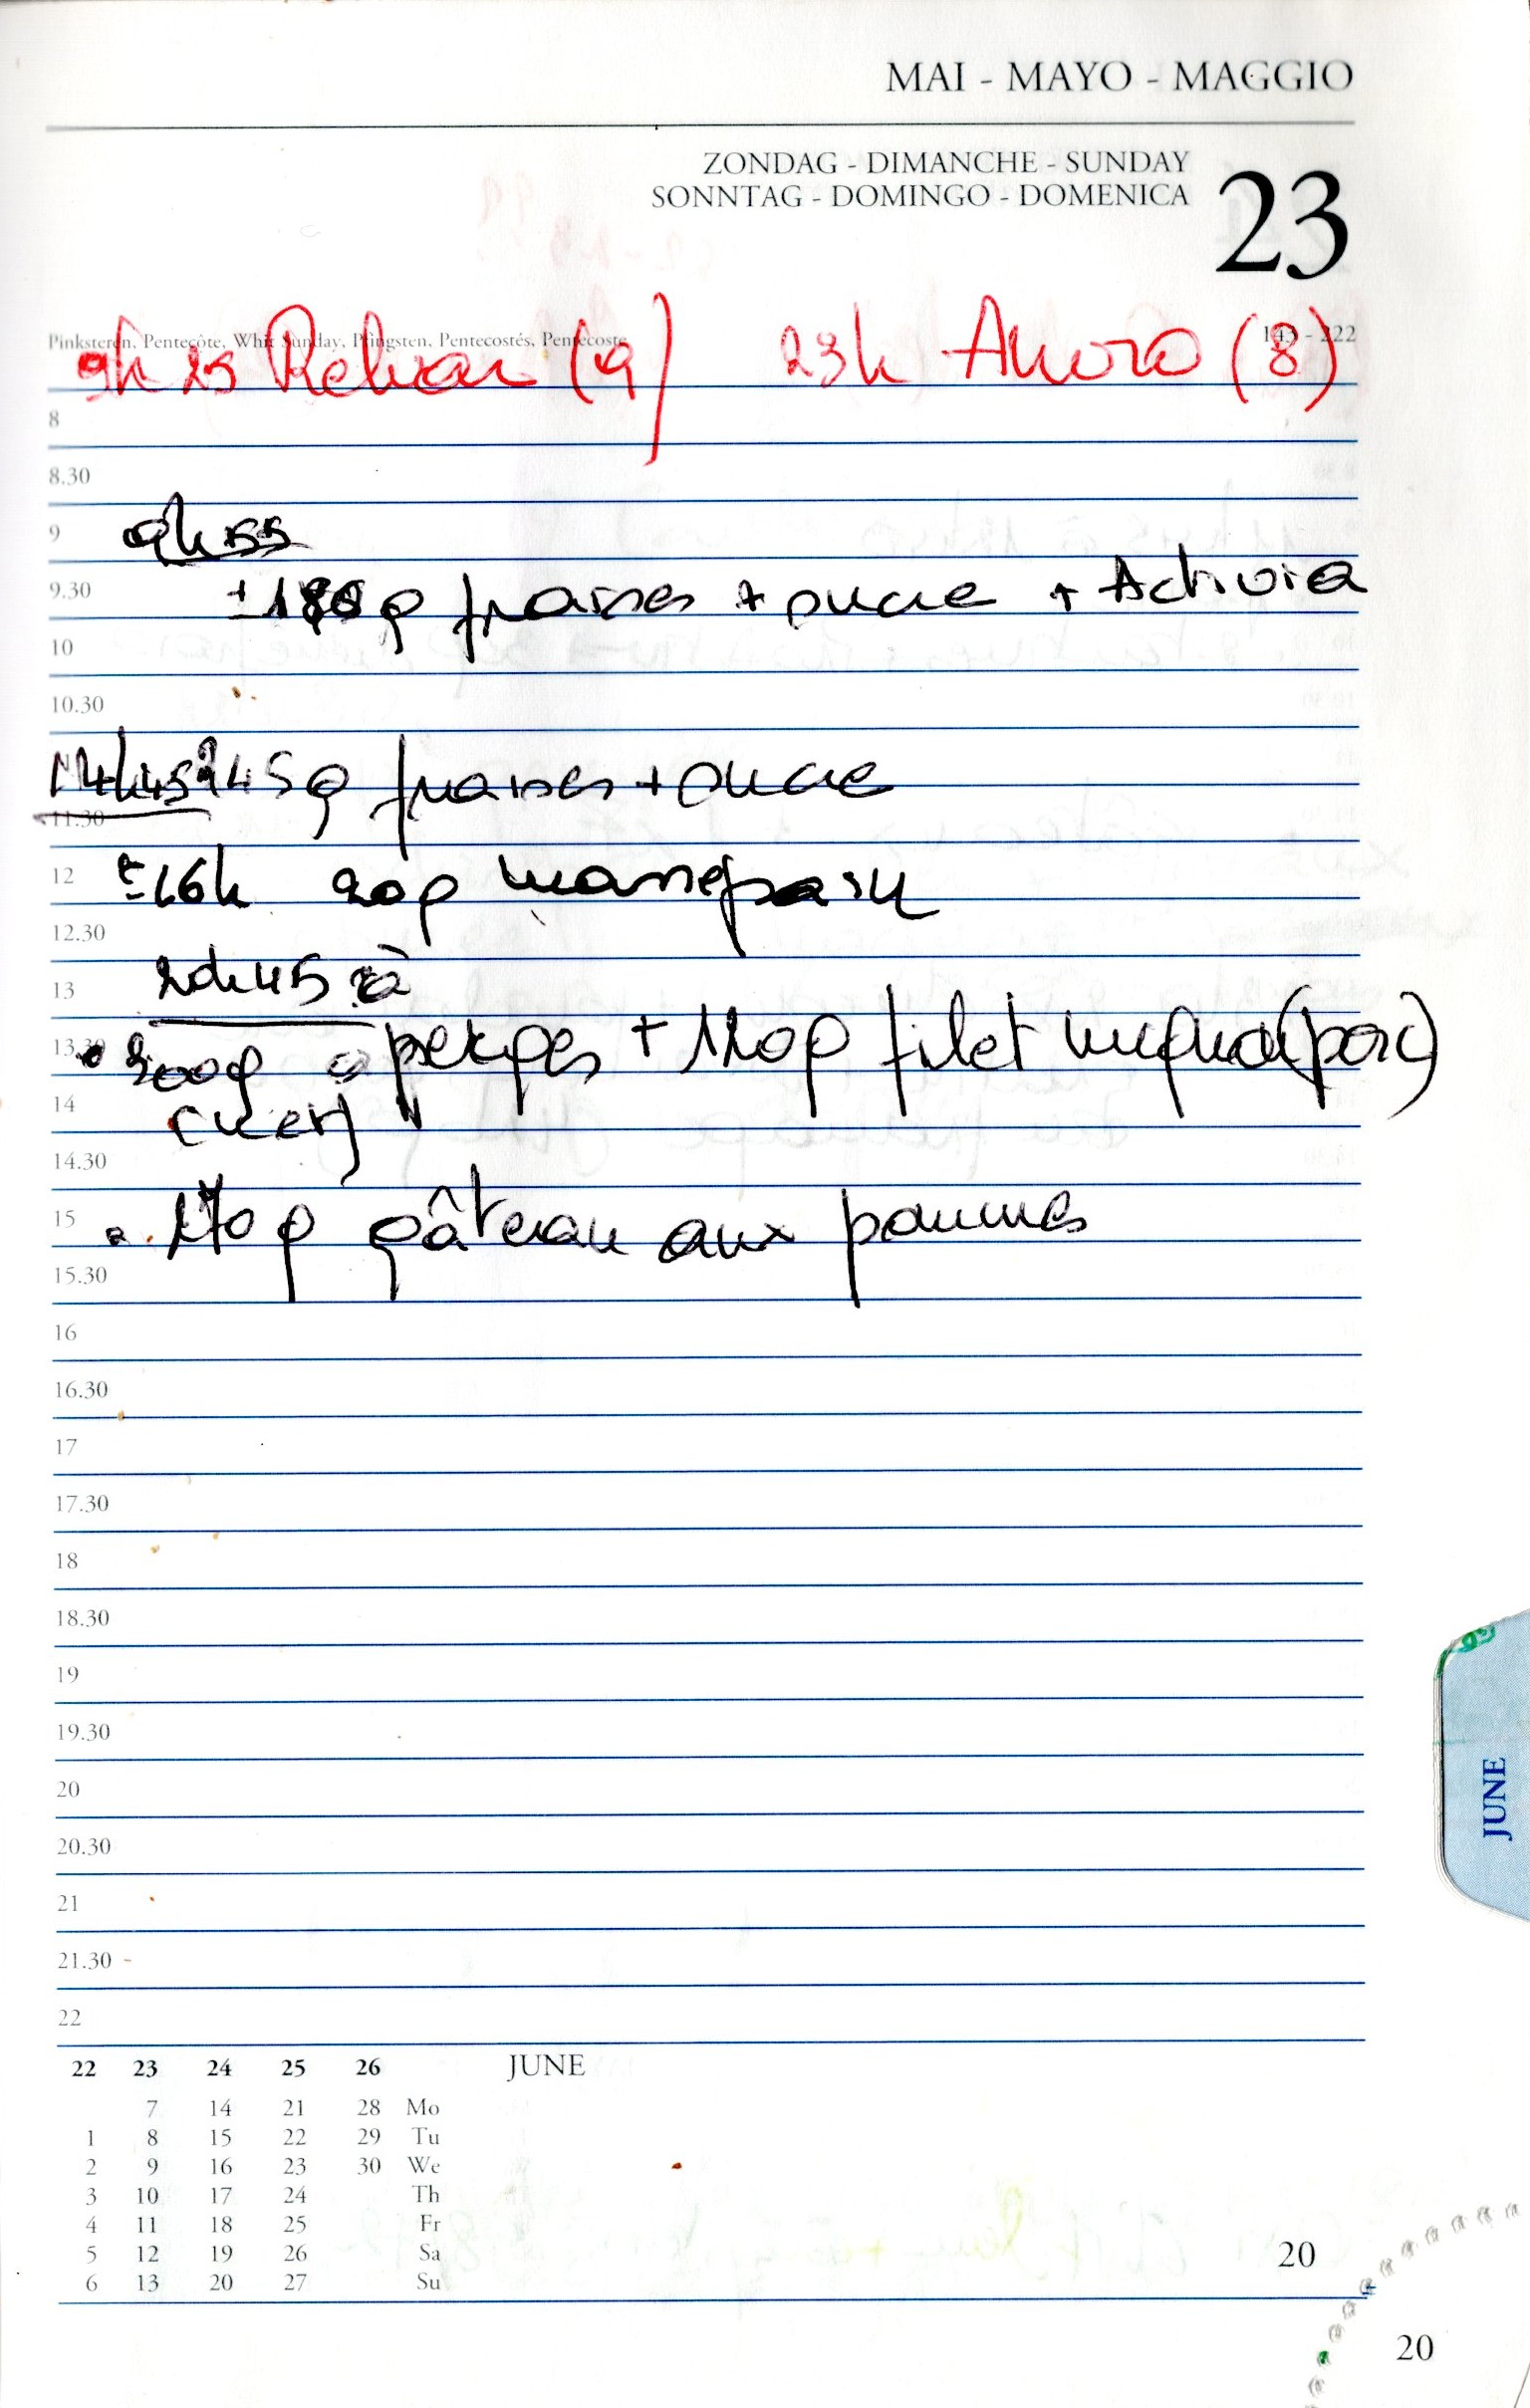 MAI - MAYO - MAGGIO
ZONDAG - DIMANCHE - SUNDAY
SONNTAG - DOMINGO - DOMENICA
23
Pinksteren, Pentecôte, Whit Sunday, Pfingsten, Pentecostés, Pentecoste
143 - 222
9h25 (9) 23h (8)
8
8.30
9 9h55
9.30 ± g fraises + sucre + Activia
10
10.30
14h45 245g fraises + sucre
11.30
12 ± 16h 20g massepain
12.30
13 20h45 à
13.30 300g asperges + 120g filet mignon (porc)
14 (cuers)
14.30
15 170g gâteau aux pommes
15.30
16
16.30
17
17.30
18
18.30
19
19.30
20
20.30
21
21.30
22
22 23 24 25 26 JUNE
7 14 21 28 Mo
1 8 15 22 29 Tu
2 9 16 23 30 We
3 10 17 24 Th
4 11 18 25 Fr
5 12 19 26 Sa
6 13 20 27 Su
20
20
JUNE